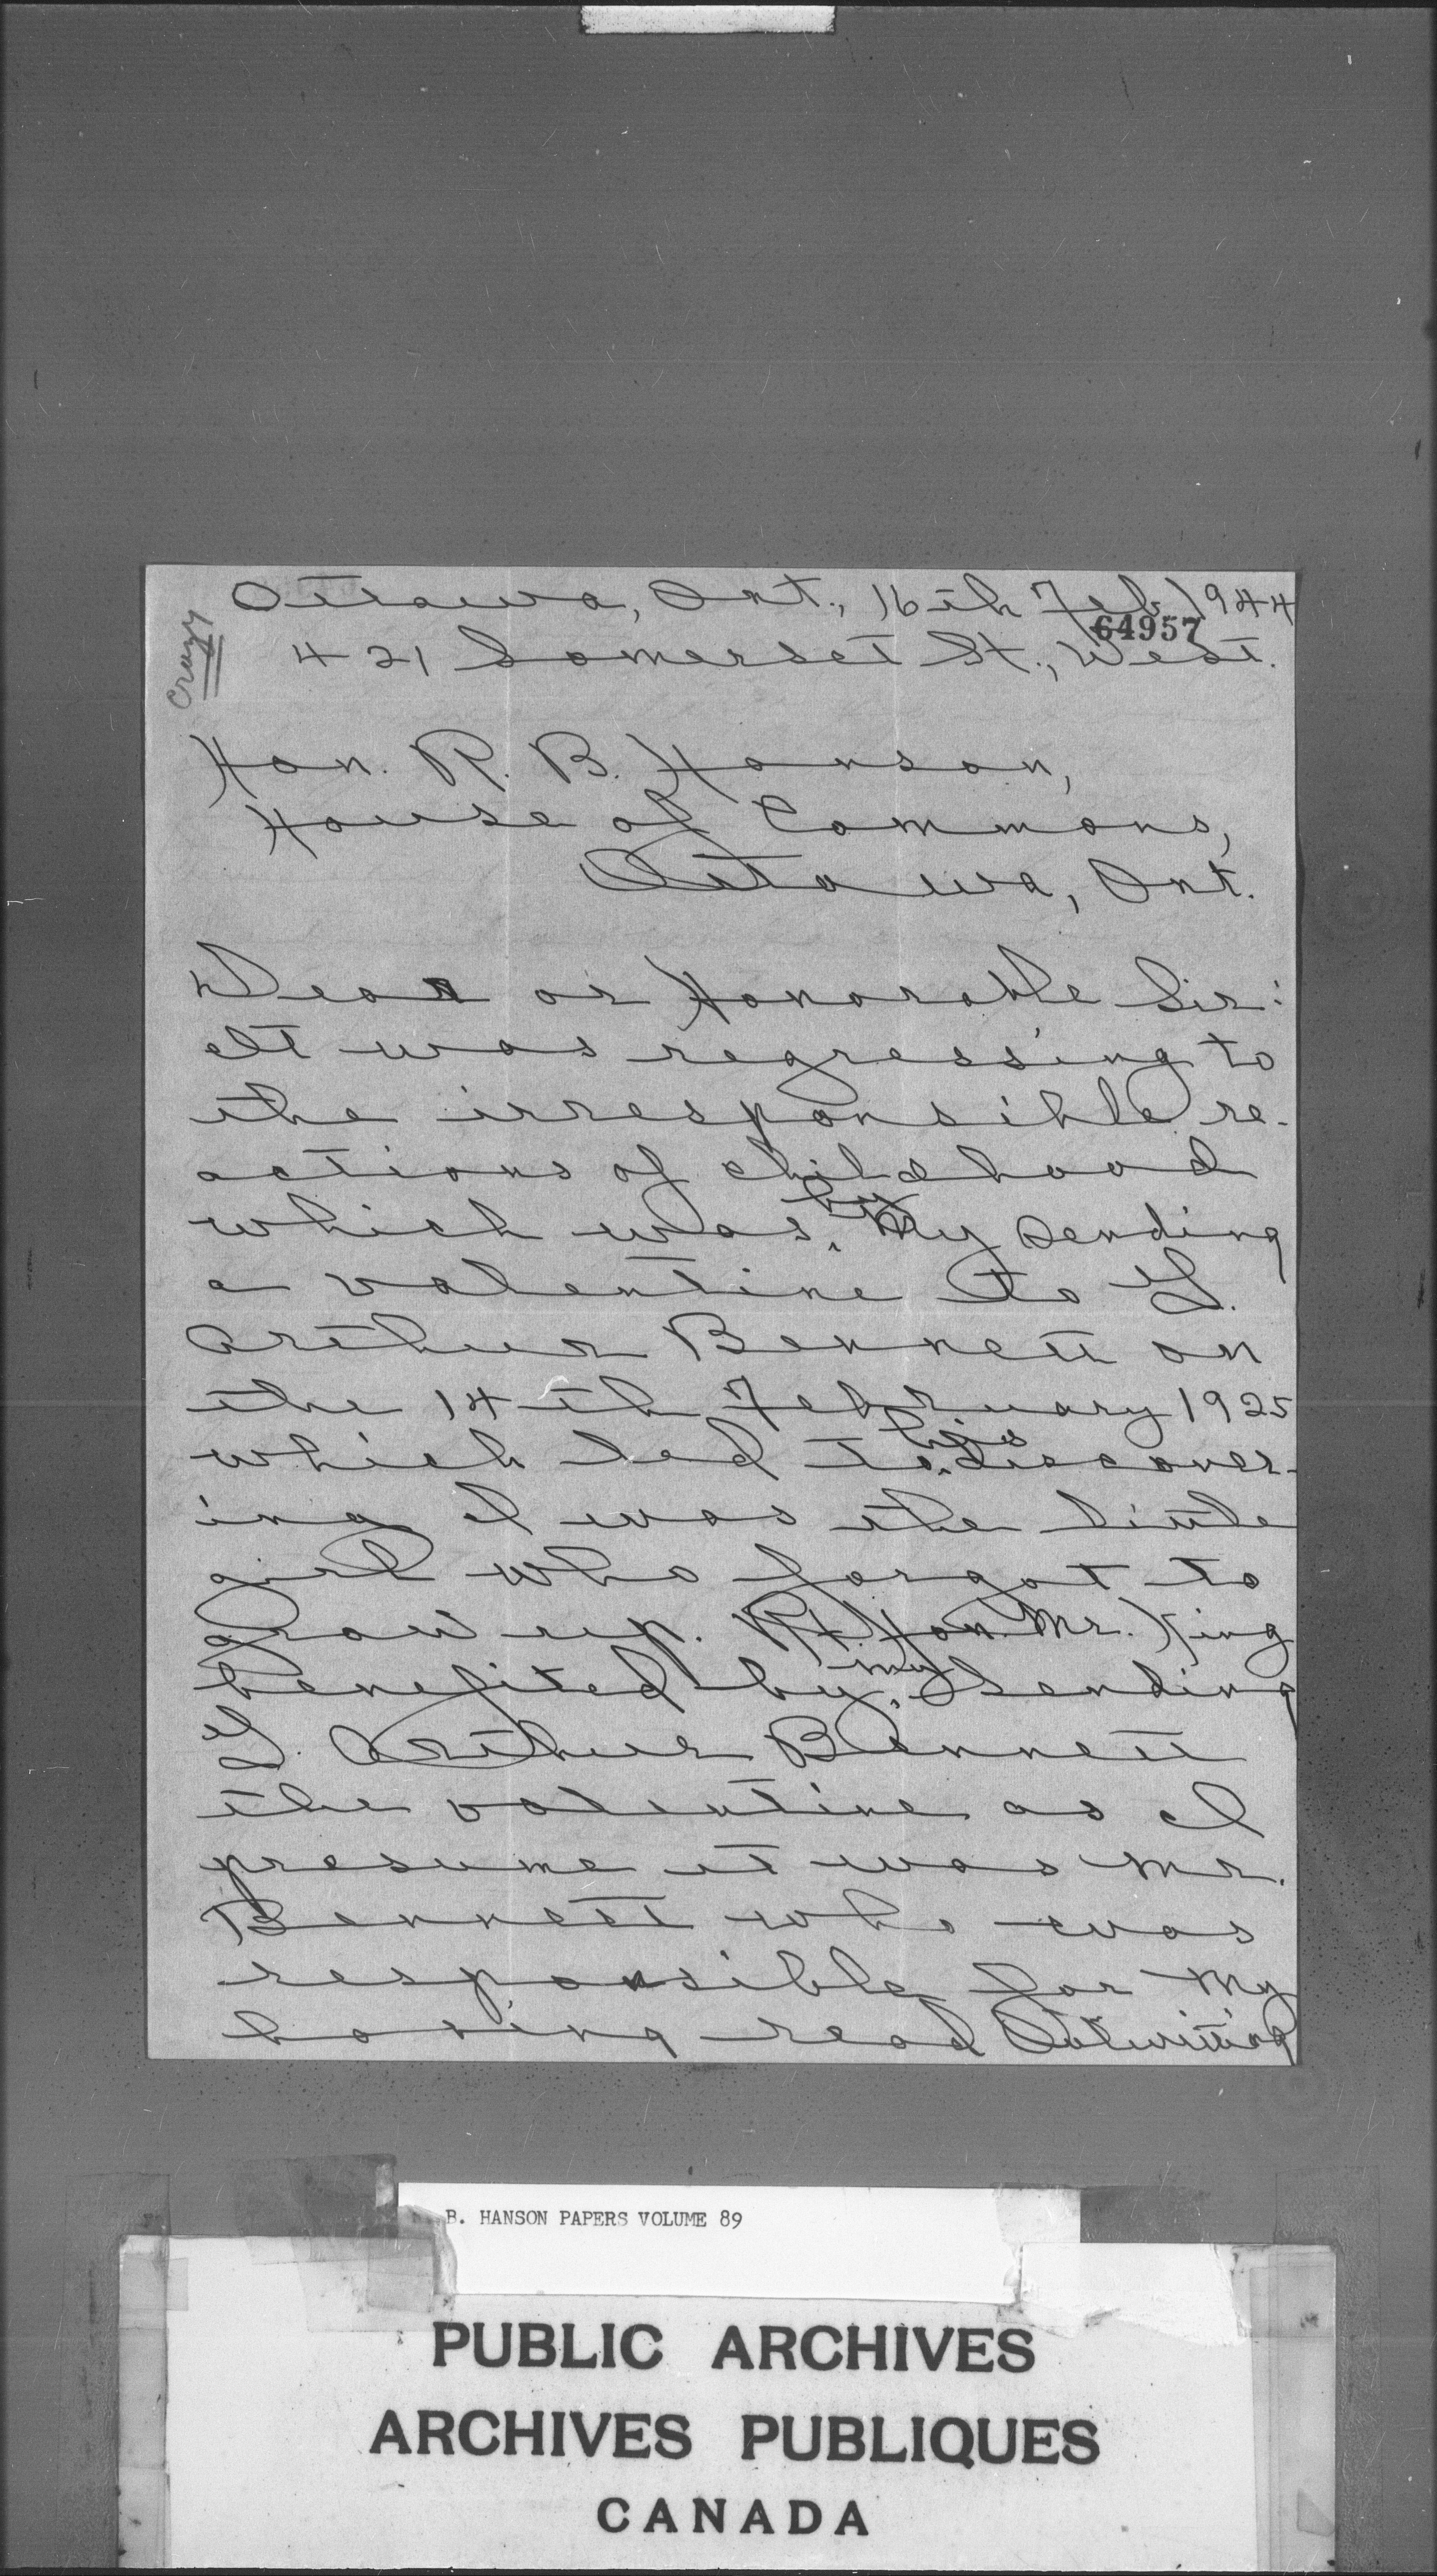 Ottawa, Ont., 16th Feb. 1944
64957
421 Somerset St., West.
Crazy
Hon. R. B. Hanson,
House of Commons,
Ottawa, Ont.
Dear or Honorable Sir:
It was regressing to
the irresponsible re-
actions of childhood
which was by my sending
a valentine to G.
Arthur Bennett on
the 14th February 1925
which led to his discover-
ing I was the little
girl who forgot to
grow up. Rt. Hon. Mr. King
benefited by my sending
G. Arthur Bennett
the valentine as I
presume it was Mr.
Bennett who was
responsible for my
having read Outwitting
B. HANSON PAPERS VOLUME 89
PUBLIC ARCHIVES
ARCHIVES PUBLIQUES
CANADA